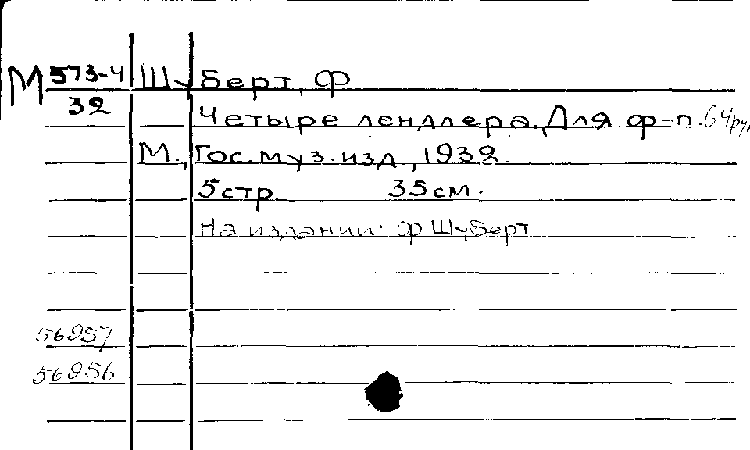 М 573-4 Шуберт, Ф
32
Четыре лендлера. Для ф-п. в 4 рук
М., Гос. муз. изд., 1932.
5 стр 35 см.
На издании: Ф Шуберт
56957
56956